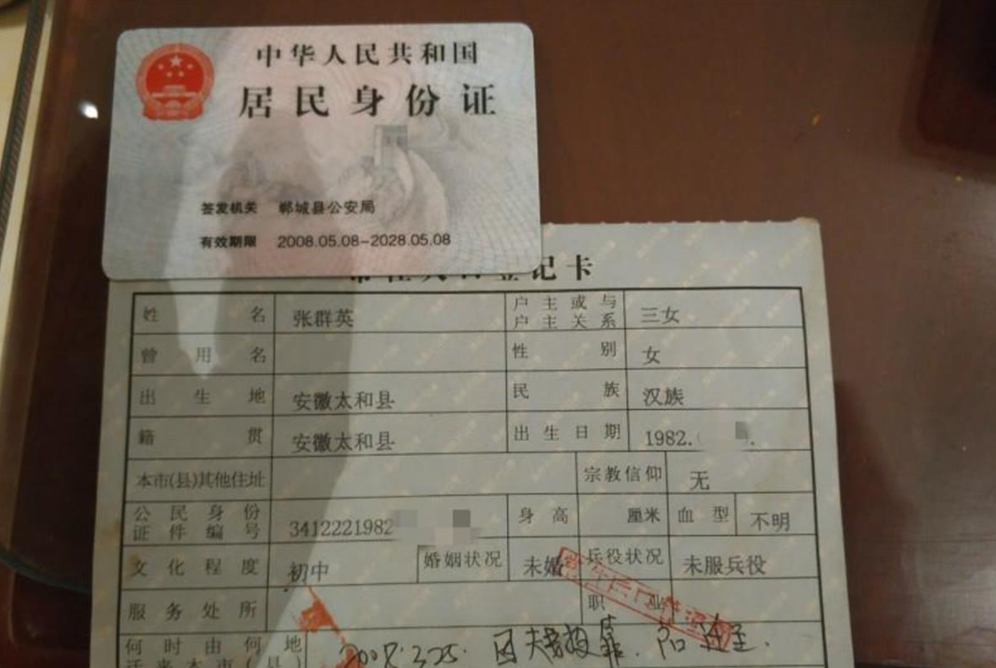 中华人民共和国
居民身份证
签发机关 郸城县公安局
有效期限 2008.05.08-2028.05.08
登记卡
姓名 张群英 户主或与户主关系 三女
曾用名 性别 女
出生地 安徽太和县 民族 汉族
籍贯 安徽太和县 出生日期 1982.
本市(县)其他住址 宗教信仰 无
公民身份证件编号 3412221982 身高 厘米 血型 不明
文化程度 初中 婚姻状况 未婚 兵役状况 未服兵役
服务处所 职业
何时由何地迁来本市(县) 2008.3.25. 因夫妻投靠